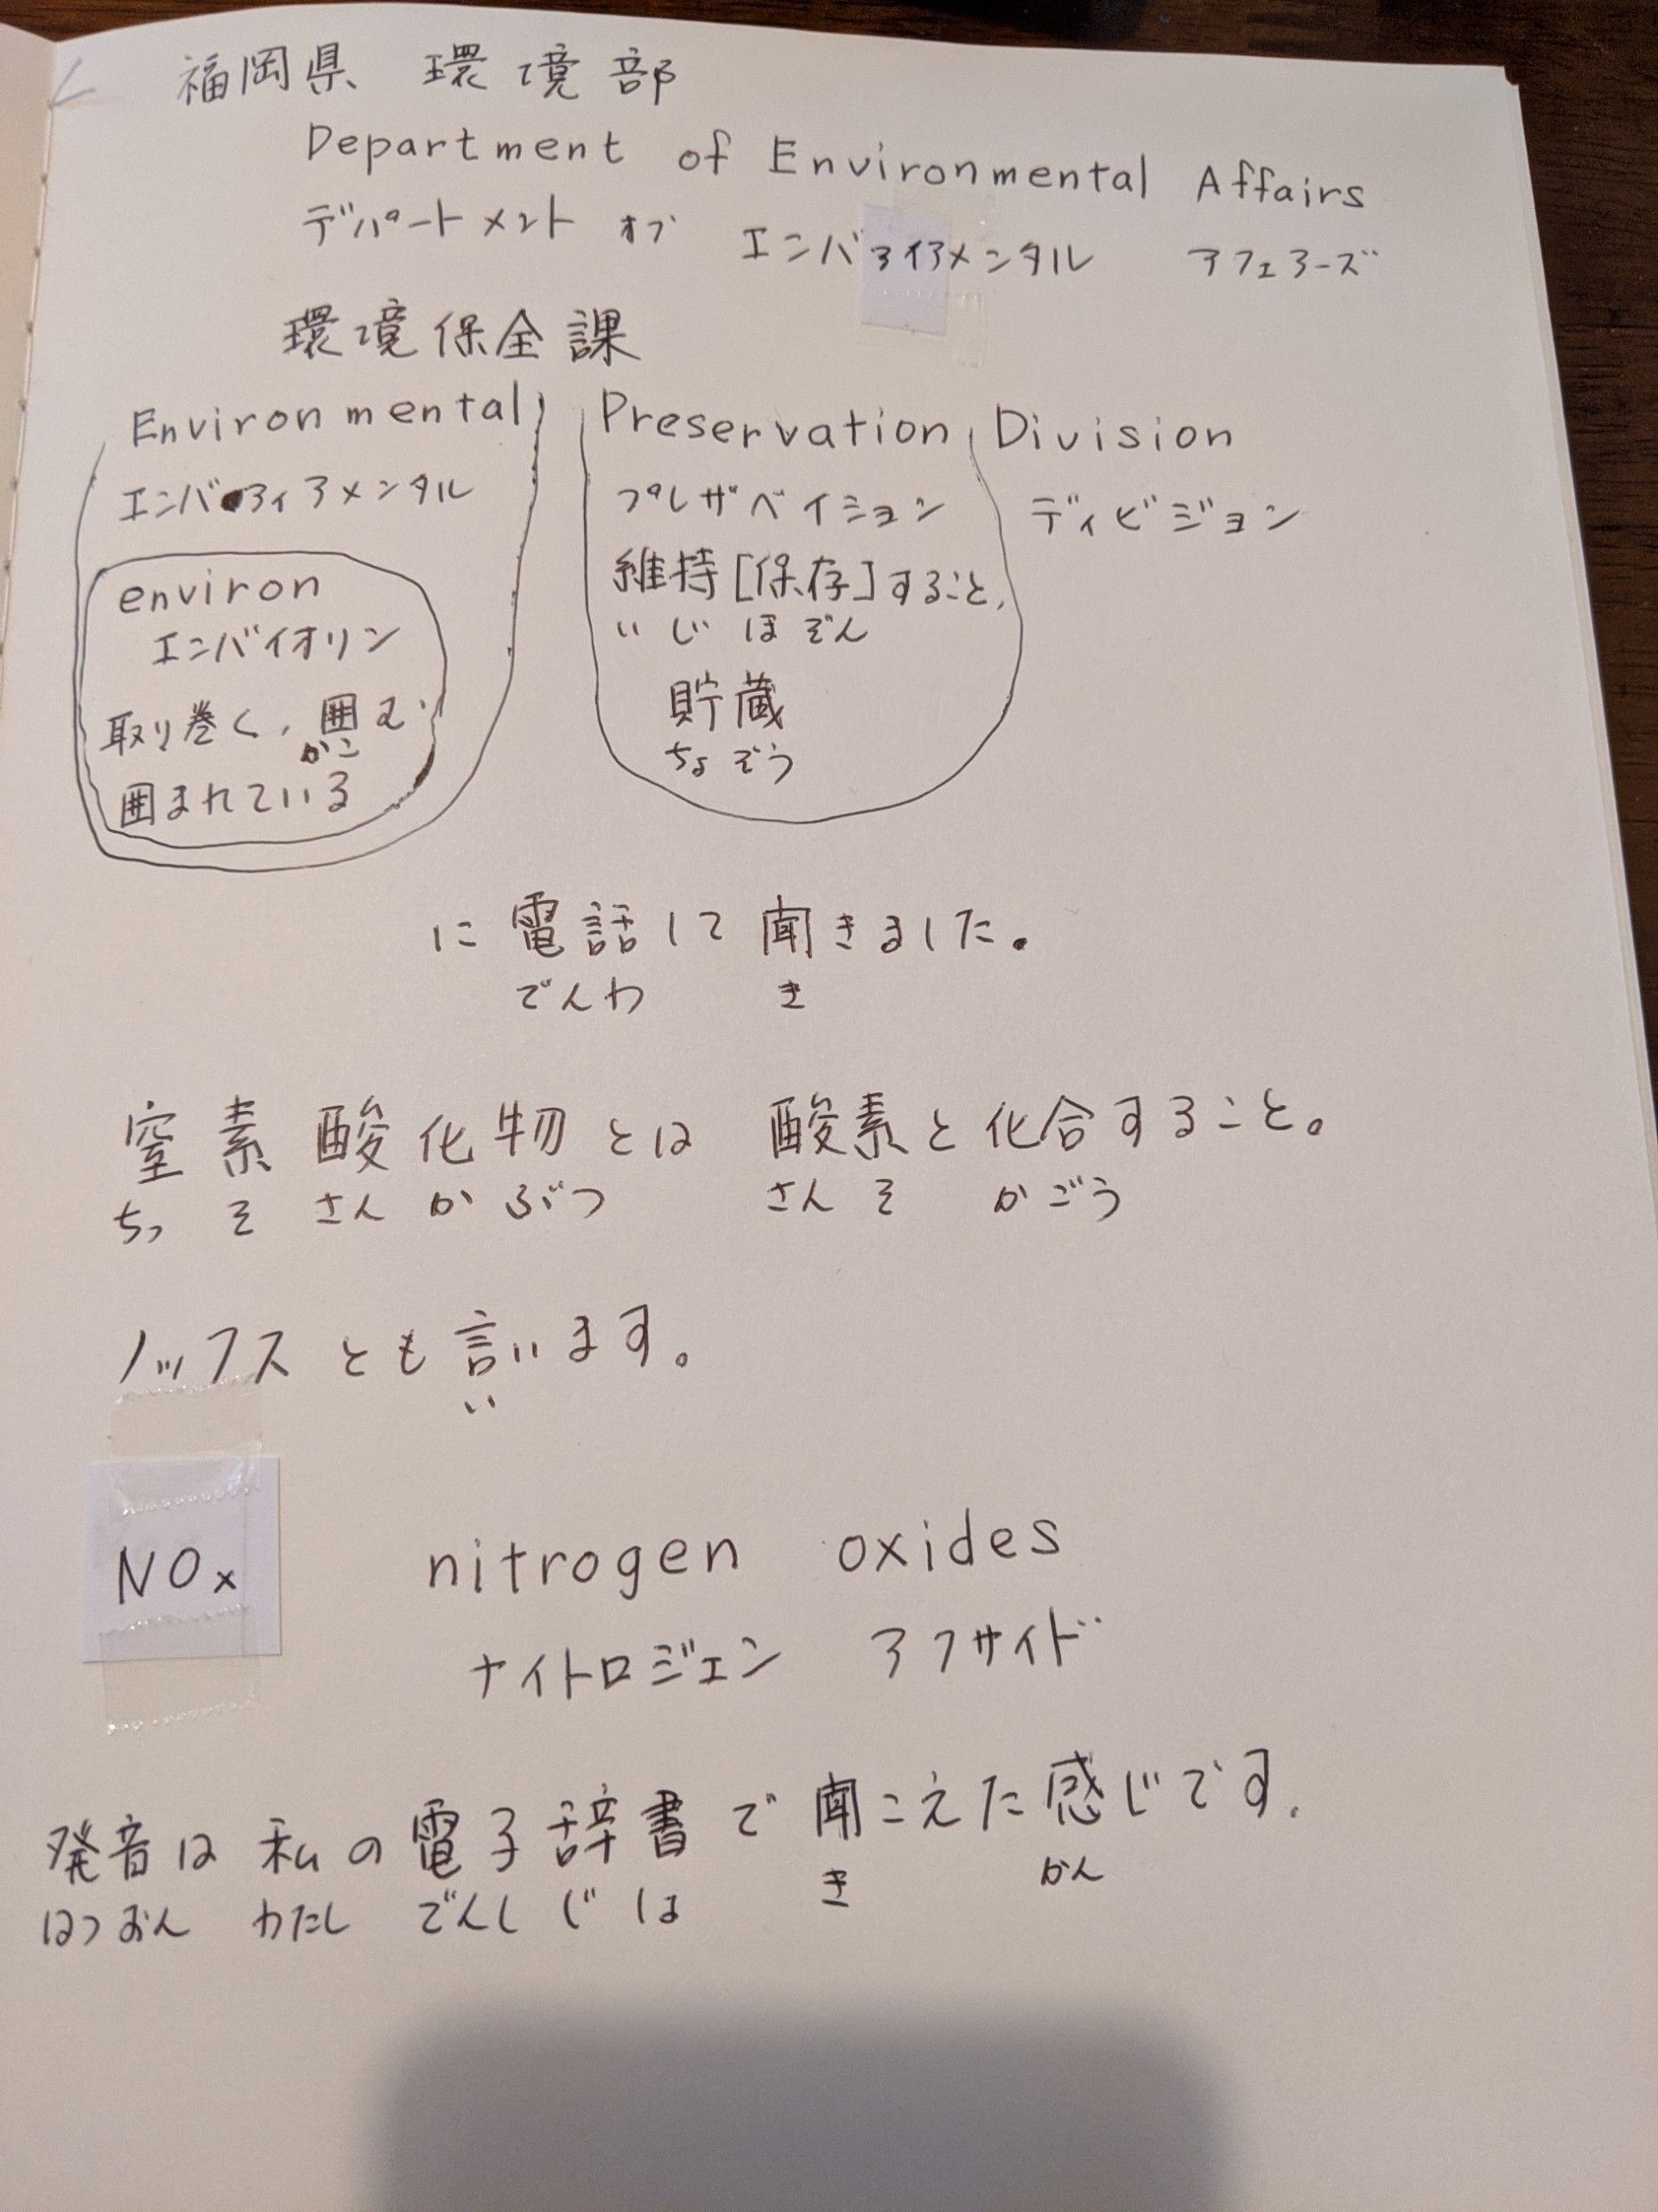 福岡県 環境部
Department of Environmental Affairs
デパートメント オブ エンバアイアメンタル アフェアーズ
環境保全課
Environmental Preservation Division
エンバアィアメンタル プレザベイション ディビジョン
environ
エンバイオリン
取り巻く、囲む
かこ
囲まれている
維持[保存]すること、
いじ ほぞん
貯蔵
ちょぞう
に電話して聞きました。
でんわ き
窒素酸化物とは 酸素と化合すること。
ちっ そ さん か ぶつ さん そ か ごう
ノックスとも言います。
い
NOx nitrogen oxides
ナイトロジェン アクサイド
発音は私の電子辞書で聞こえた感じです。
はつおん わたし でんし じ は き かん